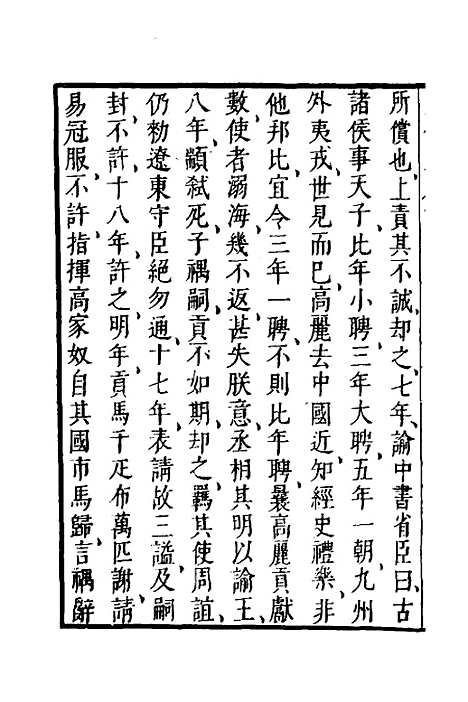 所償也上責其不誠却之七年諭中書省臣曰古
諸侯事天子比年小聘三年大聘五年一朝九州
外夷戎世見而已高麗去中國近知經史禮樂非
他邦比宜令三年一聘不則比年聘曩高麗貢獻
數使者溺海幾不返甚失朕意丞相其明以諭王
八年顓弑死子禑嗣貢不如期却之羈其使周誼
仍勑遼東守臣絕勿通十七年表請故王諡及嗣
封不許十八年許之明年貢馬千疋布萬匹謝請
易冠服不許指揮高家奴自其國市馬歸言禑辭